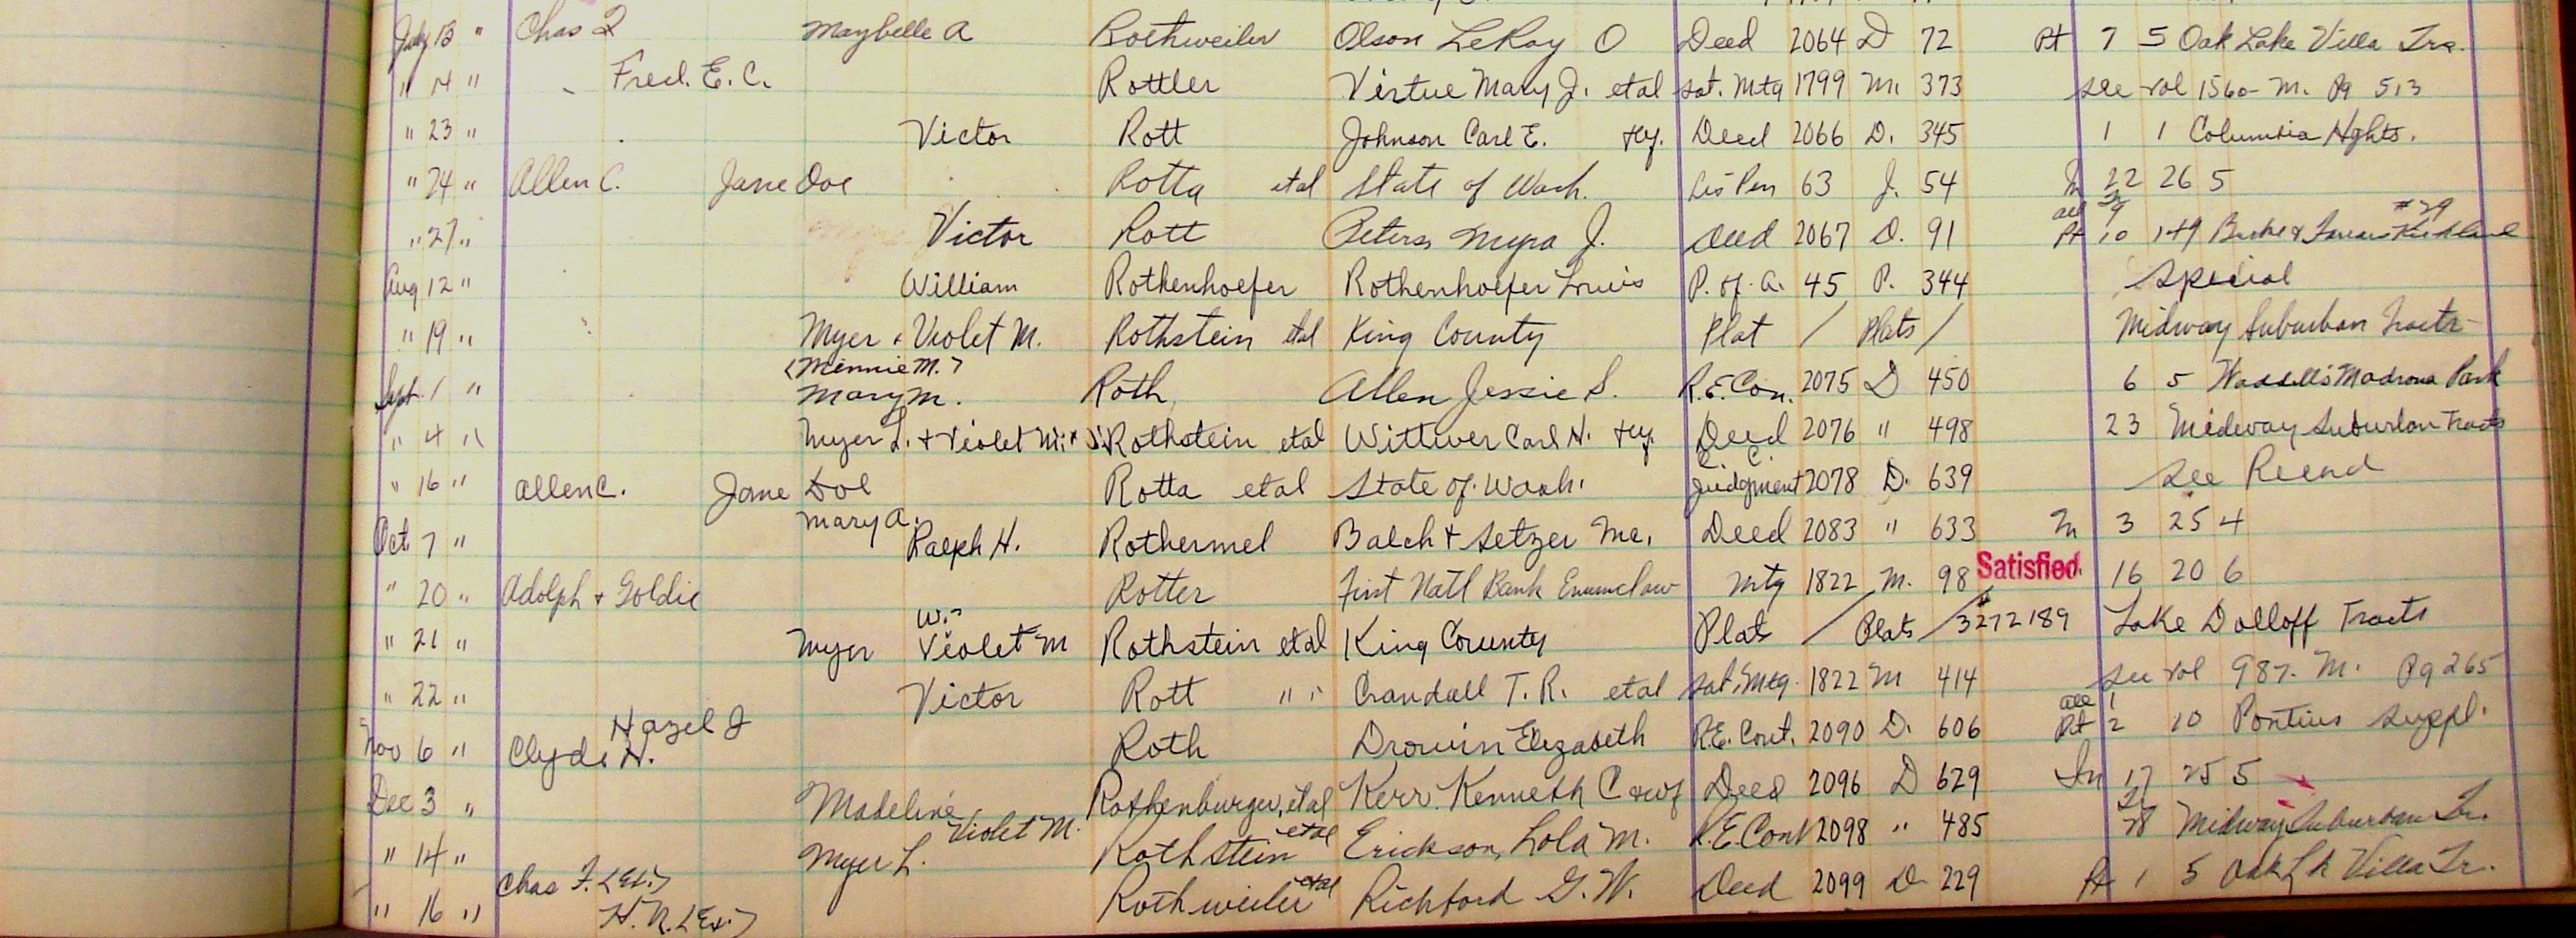 July 13 " Chas Maybelle A Rothweiler Olson LeRoy O Deed 2064 D 72 Pt 7 5 Oak Lake Villa Trs.
" 14 " Fred. E. C. Rottler Virtue Mary J. etal Sat. Mtg 1799 M. 373 see vol 1560 M. Pg 513
" 23 " Victor Rott Johnson Carl E. Deed 2066 D. 345 1 1 Columbia Hghts.
" 24 " Allen C. Jane Doe Rotta etal State of Wash. Lis Pen 63 J. 54 In 22 26 5
" 27 " Victor Rott Peters, Myra J. Deed 2067 D. 91 all 9 Pt 10 149 #29 Burke & Farrars Kirkland
Aug 12 " William Rothenhoefer Rothenhoefer Louis P. of. A. 45 P. 344 Special
" 19 " Myer & Violet M. Rothstein etal King County Plat / Plats / Midway Suburban Tracts
(Minnie M.)
Sept. 1 " Mary M. Roth, Allen Jessie S. R.E.Con. 2075 D 450 6 5 Madrona Park
" 4 " Myer L. + Violet M. Rothstein etal Wittwer Carl H. Deed 2076 " 498 23 Midway Suburban Tracts
" 16 " Allen C. Jane Doe Rotta etal State of Wash. Judgment 2078 D. 639 see Record
Mary A.
Oct. 7 " Ralph H. Rothermel Balch & Setzer Inc. Deed 2083 " 633 In 3 25 4
" 20 " Adolph + Goldie Rotter First Natl Bank Enumclaw Mtg 1822 M. 98 Satisfied. 16 20 6
" 21 " Myer Violet M Rothstein etal King County Plats / Plats / #3272189 Lake Dolloff Tracts
" 22 " Victor Rott " " Crandall T. R. etal Sat. Mtg. 1822 M 414 see vol 987. M. Pg 265
Hazel J
Nov 6 " Clyde H. Roth Drowin Elizabeth R.E. Cont. 2090 D. 606 all 1 Pt 2 10 Pontius Suppl.
Dec 3 " Madeline Rothenburger, etal Kerr Kenneth C &wf Deed 2096 D 629 In 17 25 5
" 14 " Myer L. Violet M. Rothstein etal Erickson, Lola M. R.E.Cont 2098 " 485 28 Midway Suburban Tr.
Chas F. (Ex.)
" 16 " H. R. (Ex.) Rothweiler etal Richford G. W. Deed 2099 D 229 Pt 1 5 Oak Lk Villa Tr.